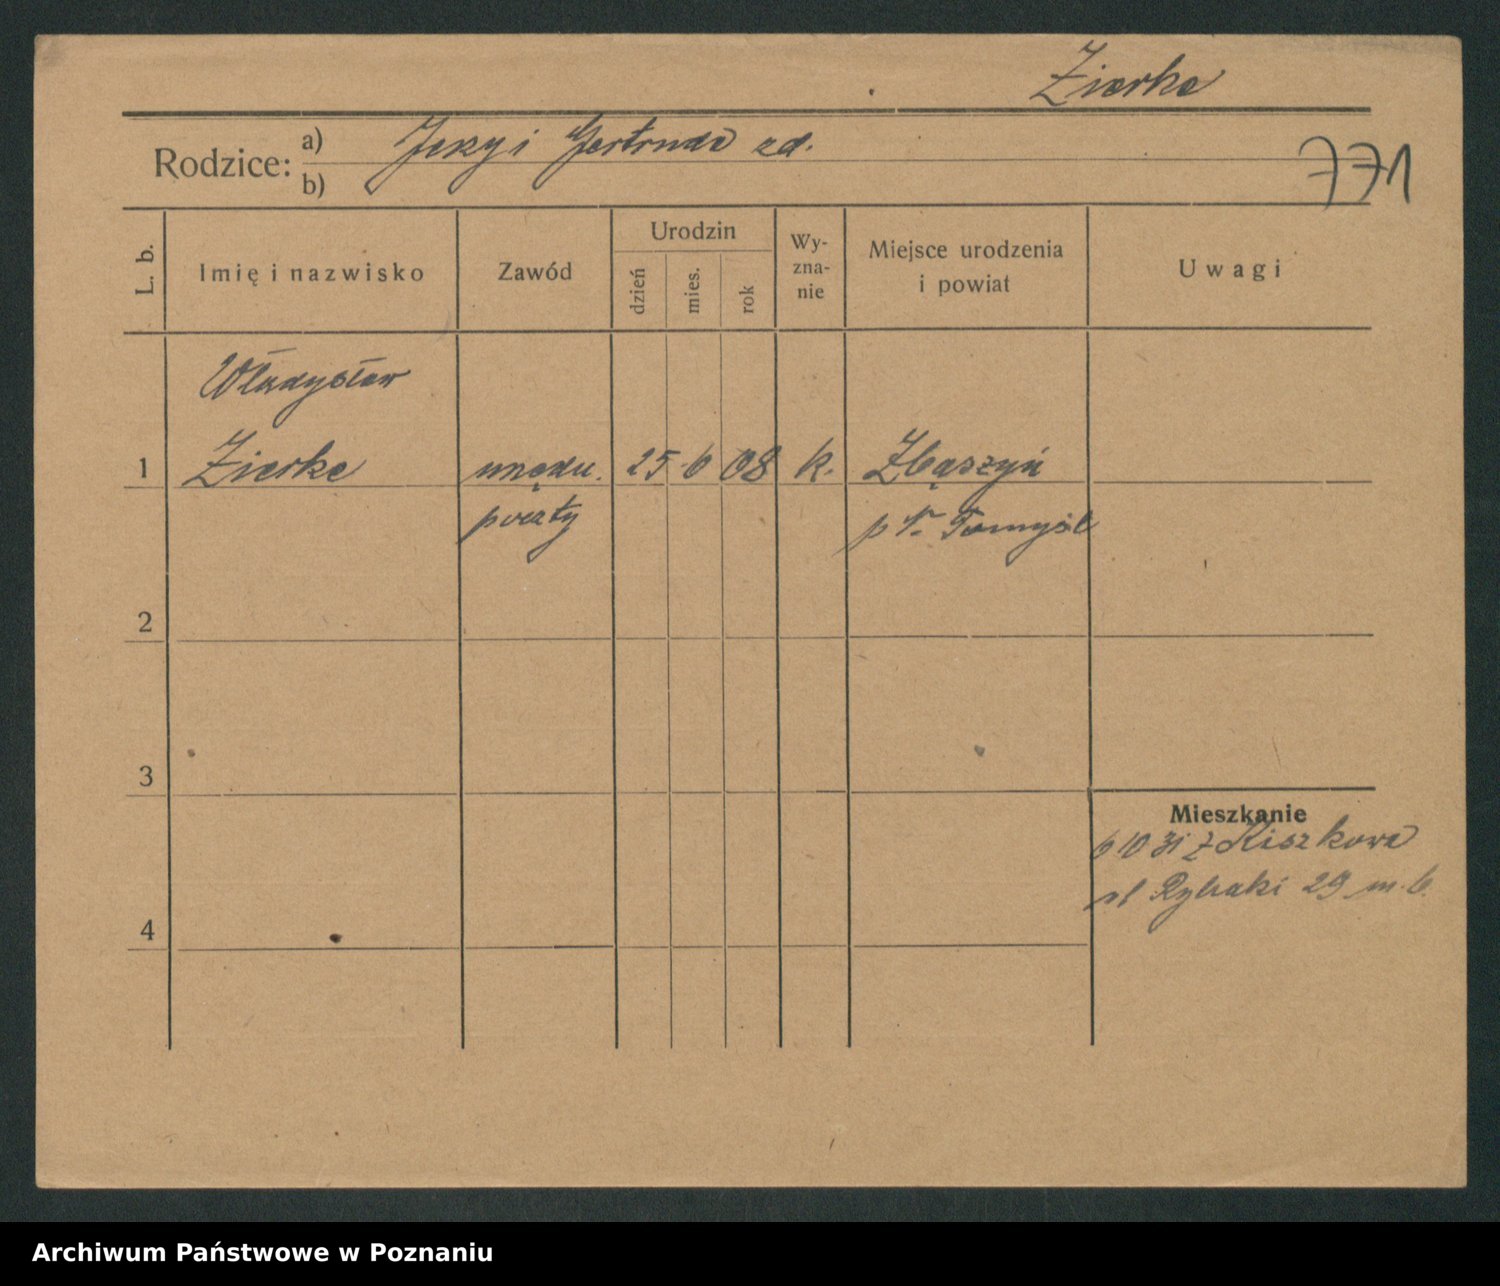 Zierke
Rodzice: a) Jerzy i Gertruda zd.
b)
771
L. b.
Imię i nazwisko
Zawód
Urodzin
dzień
mies.
rok
Wy-
zna-
nie
Miejsce urodzenia
i powiat
Uwagi
Władysław
1 Zierke urzędn. 25 6 08 k. Zbąszyń
poczty p N. Tomyśl
2
3
Mieszkanie
6 10 31 z Kiszkowa
ul Rybaki 29 m. 6.
4
Archiwum Państwowe w Poznaniu